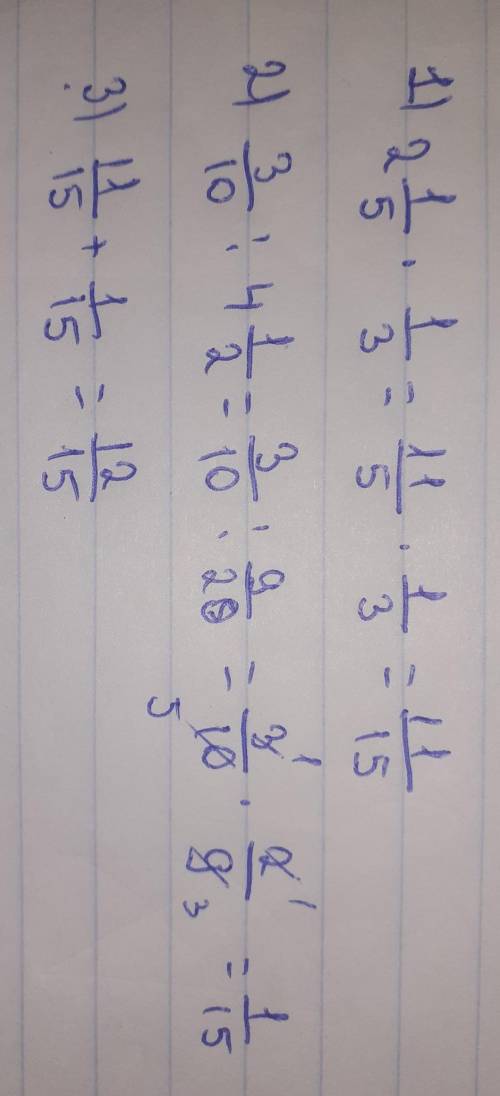 1) 2 1/5 · 1/3 = 11/5 · 1/3 = 11/15
2) 3/10 : 4 1/2 = 3/10 : 9/2 = 3 1/10 5 · 2 1/9 3 = 1/15
3) 11/15 + 1/15 = 12/15